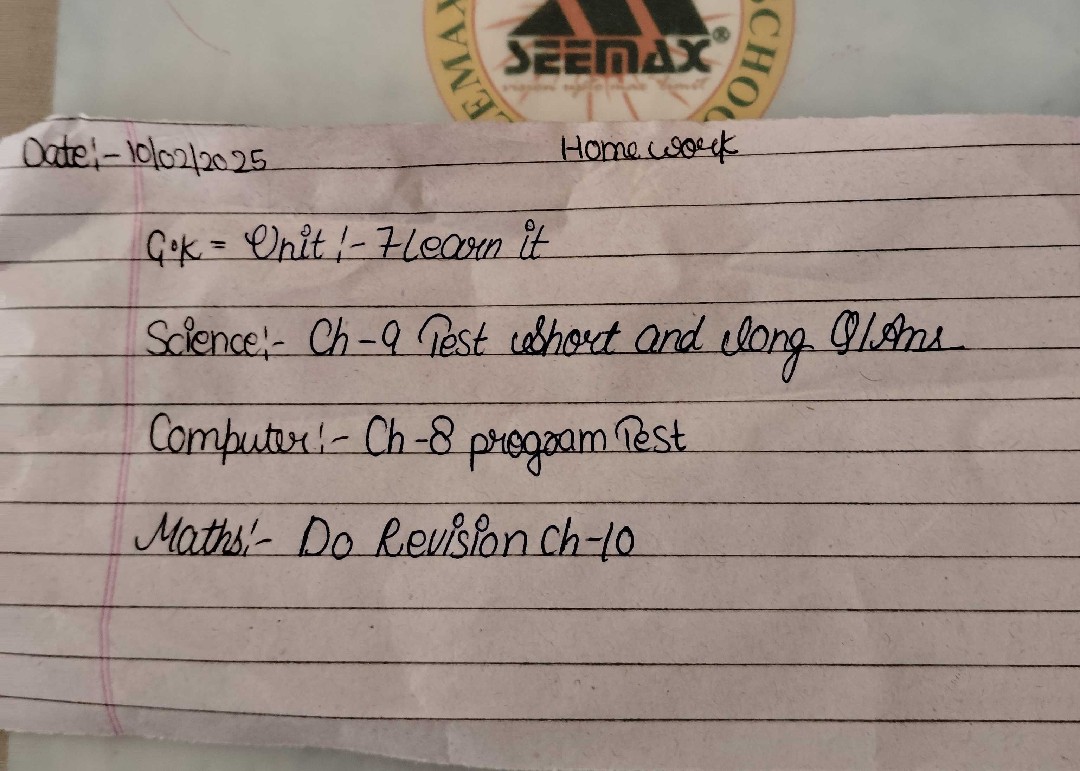 SEEMAX®
SEEMAX
SCHOO
Date:- 10/02/2025 Home work
G.K = Unit :- 7 learn it
Science:- Ch-9 Test short and long Q/Ans
Computer:- Ch-8 program Test
Maths:- Do Revision Ch-10